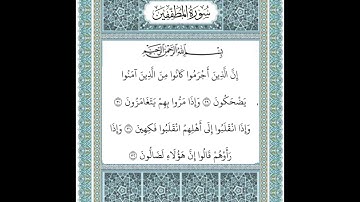 سُورَةُ المُطَفِّفِينَ
بِسْمِ اللَّهِ الرَّحْمَنِ الرَّحِيمِ
إِنَّ الَّذِينَ أَجْرَمُوا كَانُوا مِنَ الَّذِينَ آمَنُوا
يَضْحَكُونَ ﴿٢٩﴾ وَإِذَا مَرُّوا بِهِمْ يَتَغَامَزُونَ ﴿٣٠﴾
وَإِذَا انْقَلَبُوا إِلَى أَهْلِهِمُ انْقَلَبُوا فَكِهِينَ ﴿٣١﴾ وَإِذَا
رَأَوْهُمْ قَالُوا إِنَّ هَؤُلَاءِ لَضَالُّونَ ﴿٣٢﴾